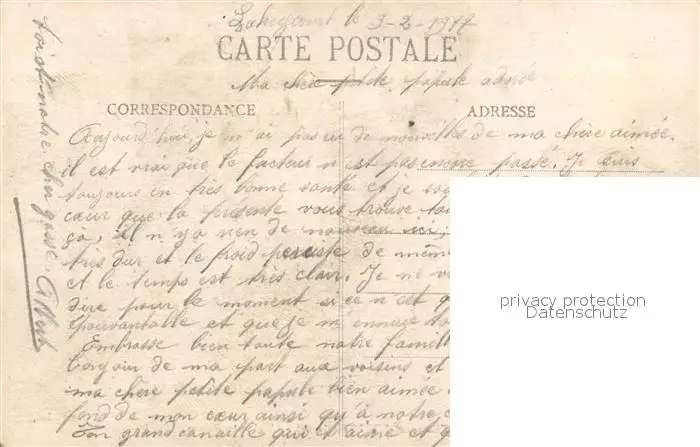 le 3-2-1917
CARTE POSTALE
Ma chère petite adorée
CORRESPONDANCE
ADRESSE
Aujourd'hui, je n'ai pas eu de nouvelles de ma chère aimée.
il est vrai que le facteur n'est pas encore passé. Je suis
toujours en très bonne santé et je
cœur que la présente vous trouve
ça, il n'y a rien de nouveau ici,
très dur et le froid persiste de même
et le temps est très clair. Je ne
dire pour le moment si ce n'est
épouvantable et que je m'ennuie
Embrasse bien toute notre famille
bonjour de ma part aux voisins et
ma chère petite bien aimée
fond de mon cœur ainsi qu'à notre
Ton grand canaille qui t'aime et
toi et notre cher gosse. Albert
privacy protection
Datenschutz